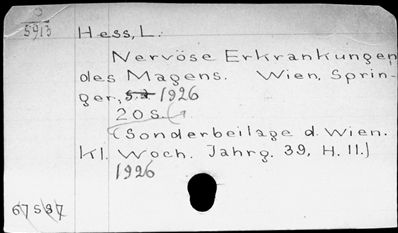 O
5913
Hess, L.
Nervöse Erkrankungen
des Magens. Wien, Sprin-
ger, s.a. 1926
20 S.
(Sonderbeilage d. Wien.
kl. Woch. Jahrg. 39, H. 11.)
1926
67587